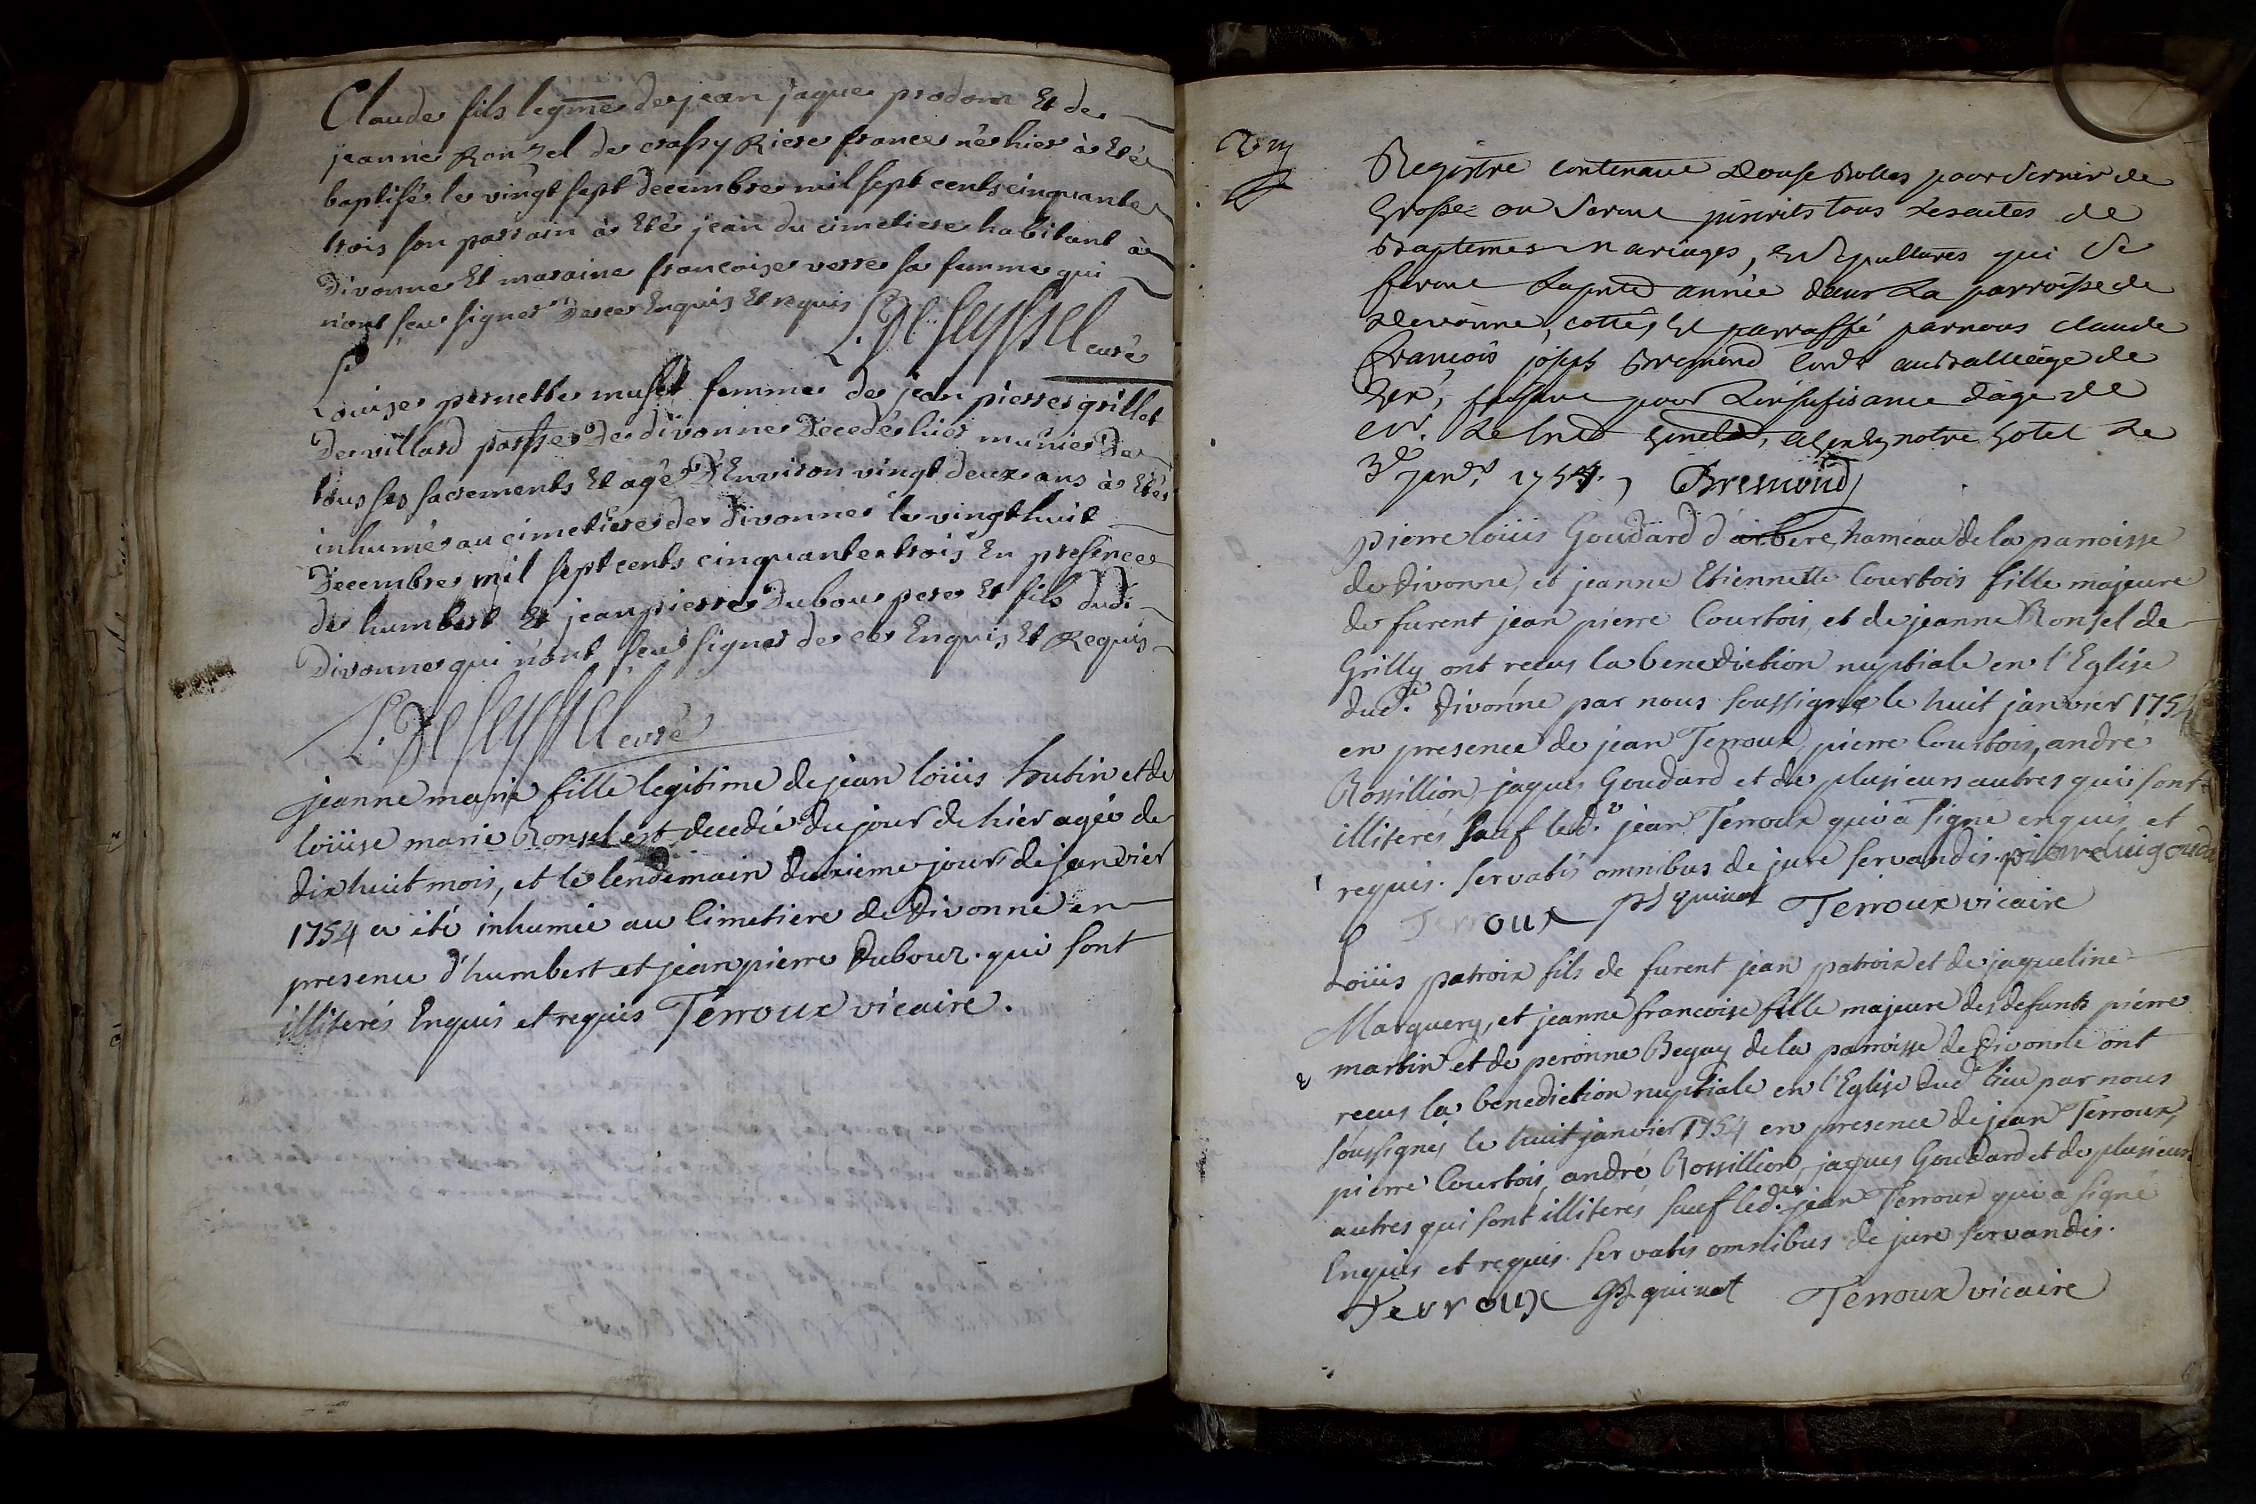 Claude fils legme de jean jaque prodom Et de
jeanne Ronzel de crassy Riere france né hier à Eté
baptisé le vingt sept decembre mil sept cents cinquante
trois son parrain à Eté jean du cimetiere habitant à
Divonne Et maraine francoise verre sa femme qui
n'ont sceu signer de ce Enquis Et requis L. De Seyssel curé
Louise pernette muset femme de jean pierre grillet
De villard parsse De divonne Decedée hier munie De
tous ses sacrements Et agée D'Environ vingt deux ans à Eté
inhumée au cimetiere de divonne le vingt huit
Decembre mil sept cents cinquante trois En presence
de humbert Et jean pierre Dubour pere Et fils dud:
Divonne qui n'ont sceu signer de ce Enquis Et Requis
L. De Seyssel curé
jeanne marie fille legitime de jean loüis hutin et de
loüise marie Ronsel est decedée du jour de hier agée de
dix huit mois, et le lendemain deuxieme jour de janvier
1754 a été inhumée au Cimetiere de Divonne en
presence d'humbert et jean pierre Dubour. qui sont
illiterés Enquis et requis Terroux vicaire.
Registre contenant douse Rolles pour servir de
Grosse ou seront inscrits tous les actes de
Baptemes Mariages, et sepultures qui se
feront la pnte année dans la parroisse de
Devonne, cottés et parraffé par nous claude
françois joseph Bremond au Balliage de
Gex, faisant pour l'insufisance d'age de
notre hotel le
3e janr. 1754. Bremond
pierre loüis Goudard d'arbere, hameau de la parroisse
de Divonne, et jeanne Etiennette Courtois fille majeure
de furent jean pierre Courtois, et de jeanne Ronsel de
Grilly ont recus la benediction nuptiale en l'Eglise
dud.e Divonne par nous soussigné le huit janvier 1754
en presence de jean Terroux, pierre Courtois, andré
Rossillion jaques Goudard et de plusieurs autres qui sont
illiterés sauf led.t jean Terroux qui à signé enquis et
requis. servatis omnibus de jure servandis. pierre luigouda
Terroux quinet Terroux vicaire
Loüis patroix fils de furent jean patroix et de jaqueline
Marquery, et jeanne francoise fille majeure des defunts pierre
martin et de peronne Begay de la parroisse de Divonne ont
recus la benediction nuptiale en l'Eglise dud. lieu par nous
soussignés le huit janvier 1754 en presence de jean Terroux,
pierre Courtois, andré Rossillion, jaques Goudard et de plusieurs
autres qui sont illiterés sauf led. jean Terroux qui à signé
Enquis et requis. servatis omnibus de jure servandis.
Terroux quinet Terroux vicaire